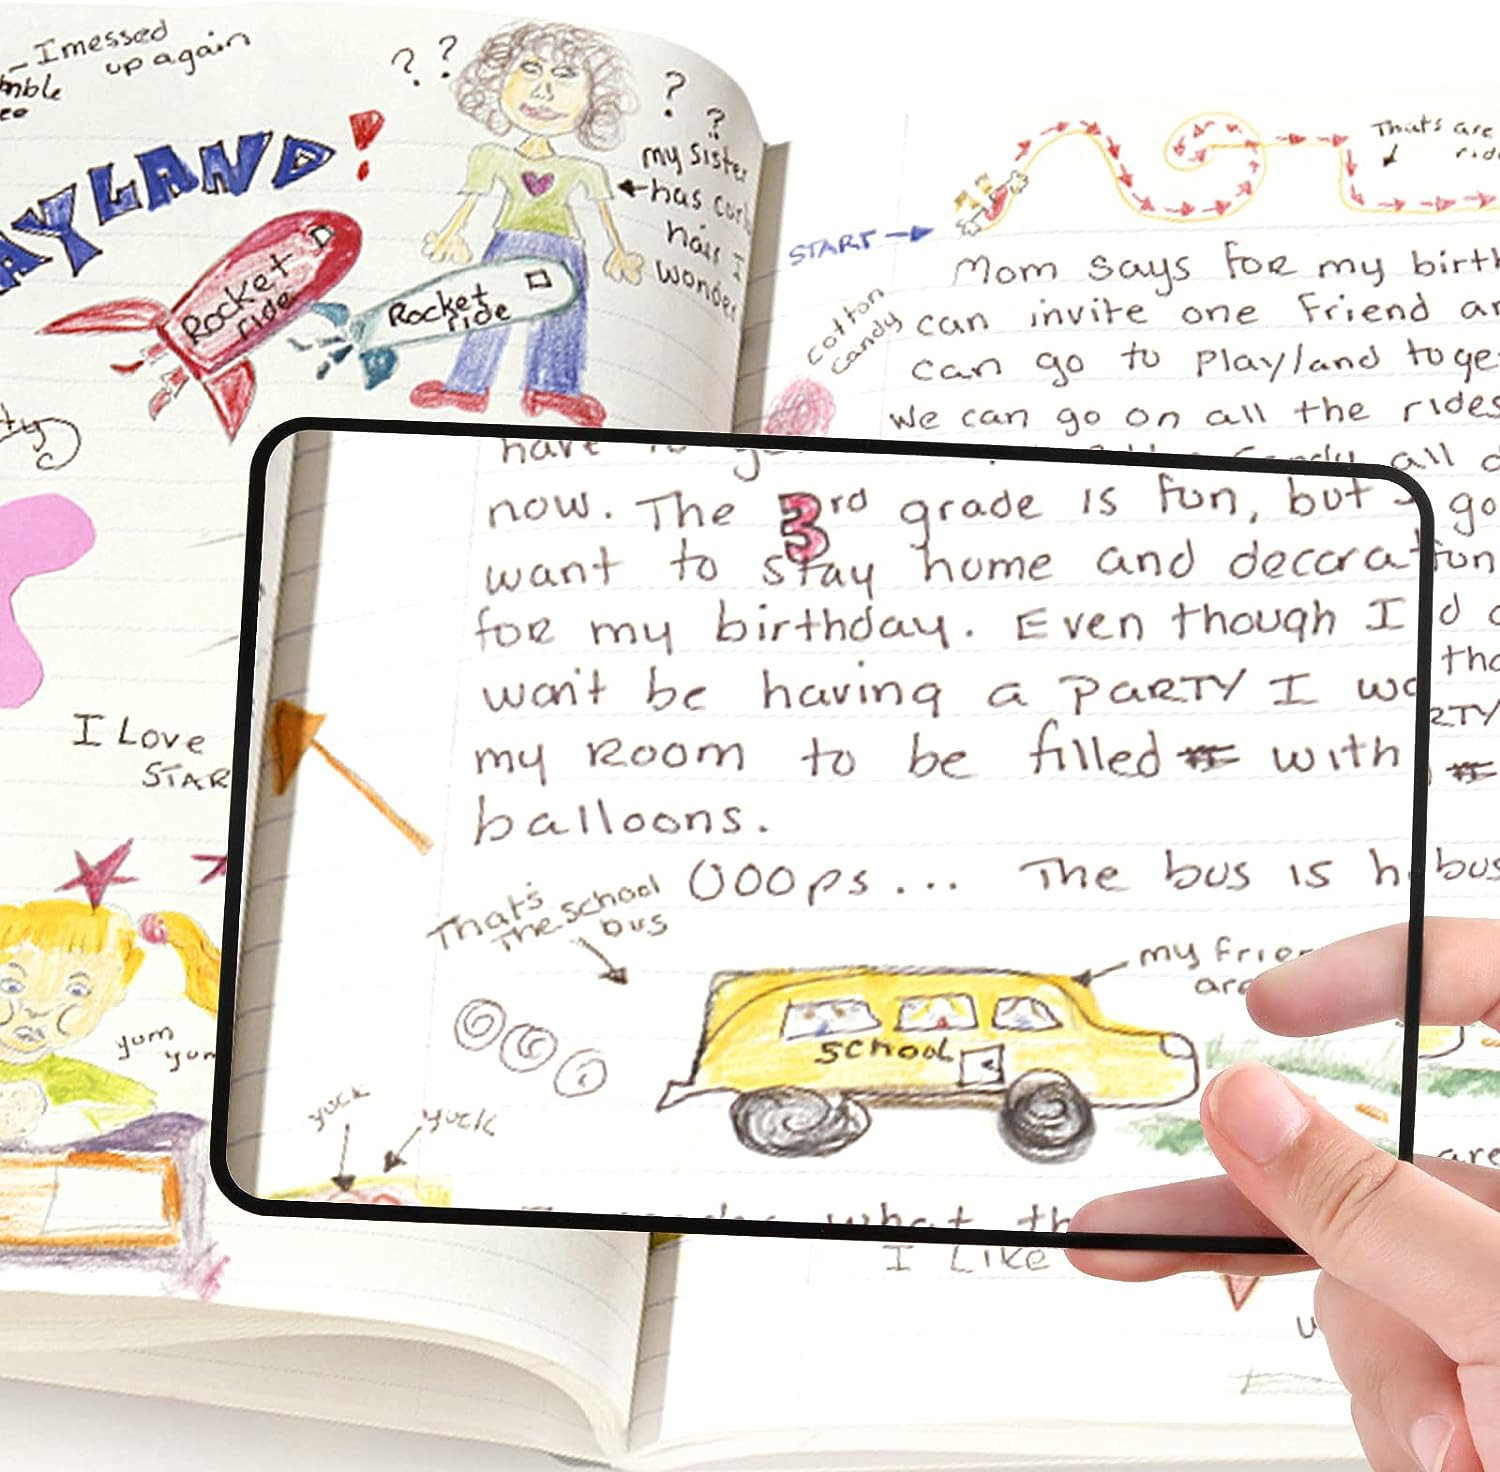 I messed
up again
? ?
? ?
AYLAND!
my sister
has curly
hair I
wonder
Rocket
ride
Rocket
ride
I Love
STAR
yum
yum
Thats are
START
cotton
candy
Mom says For my birth
can invite one Friend an
can go to Playland toge
We can go on all the rides
all
have
now. The 3rd grade is fun, but
go
want to stay home and decora
for my birthday. Even though I
won't be having a PARTY I wo
my Room to be filled with
balloons.
OOOps... The bus is h
bus
That's
the school
bus
my frie
are
school
yuck
yuck
are
what th
I Like